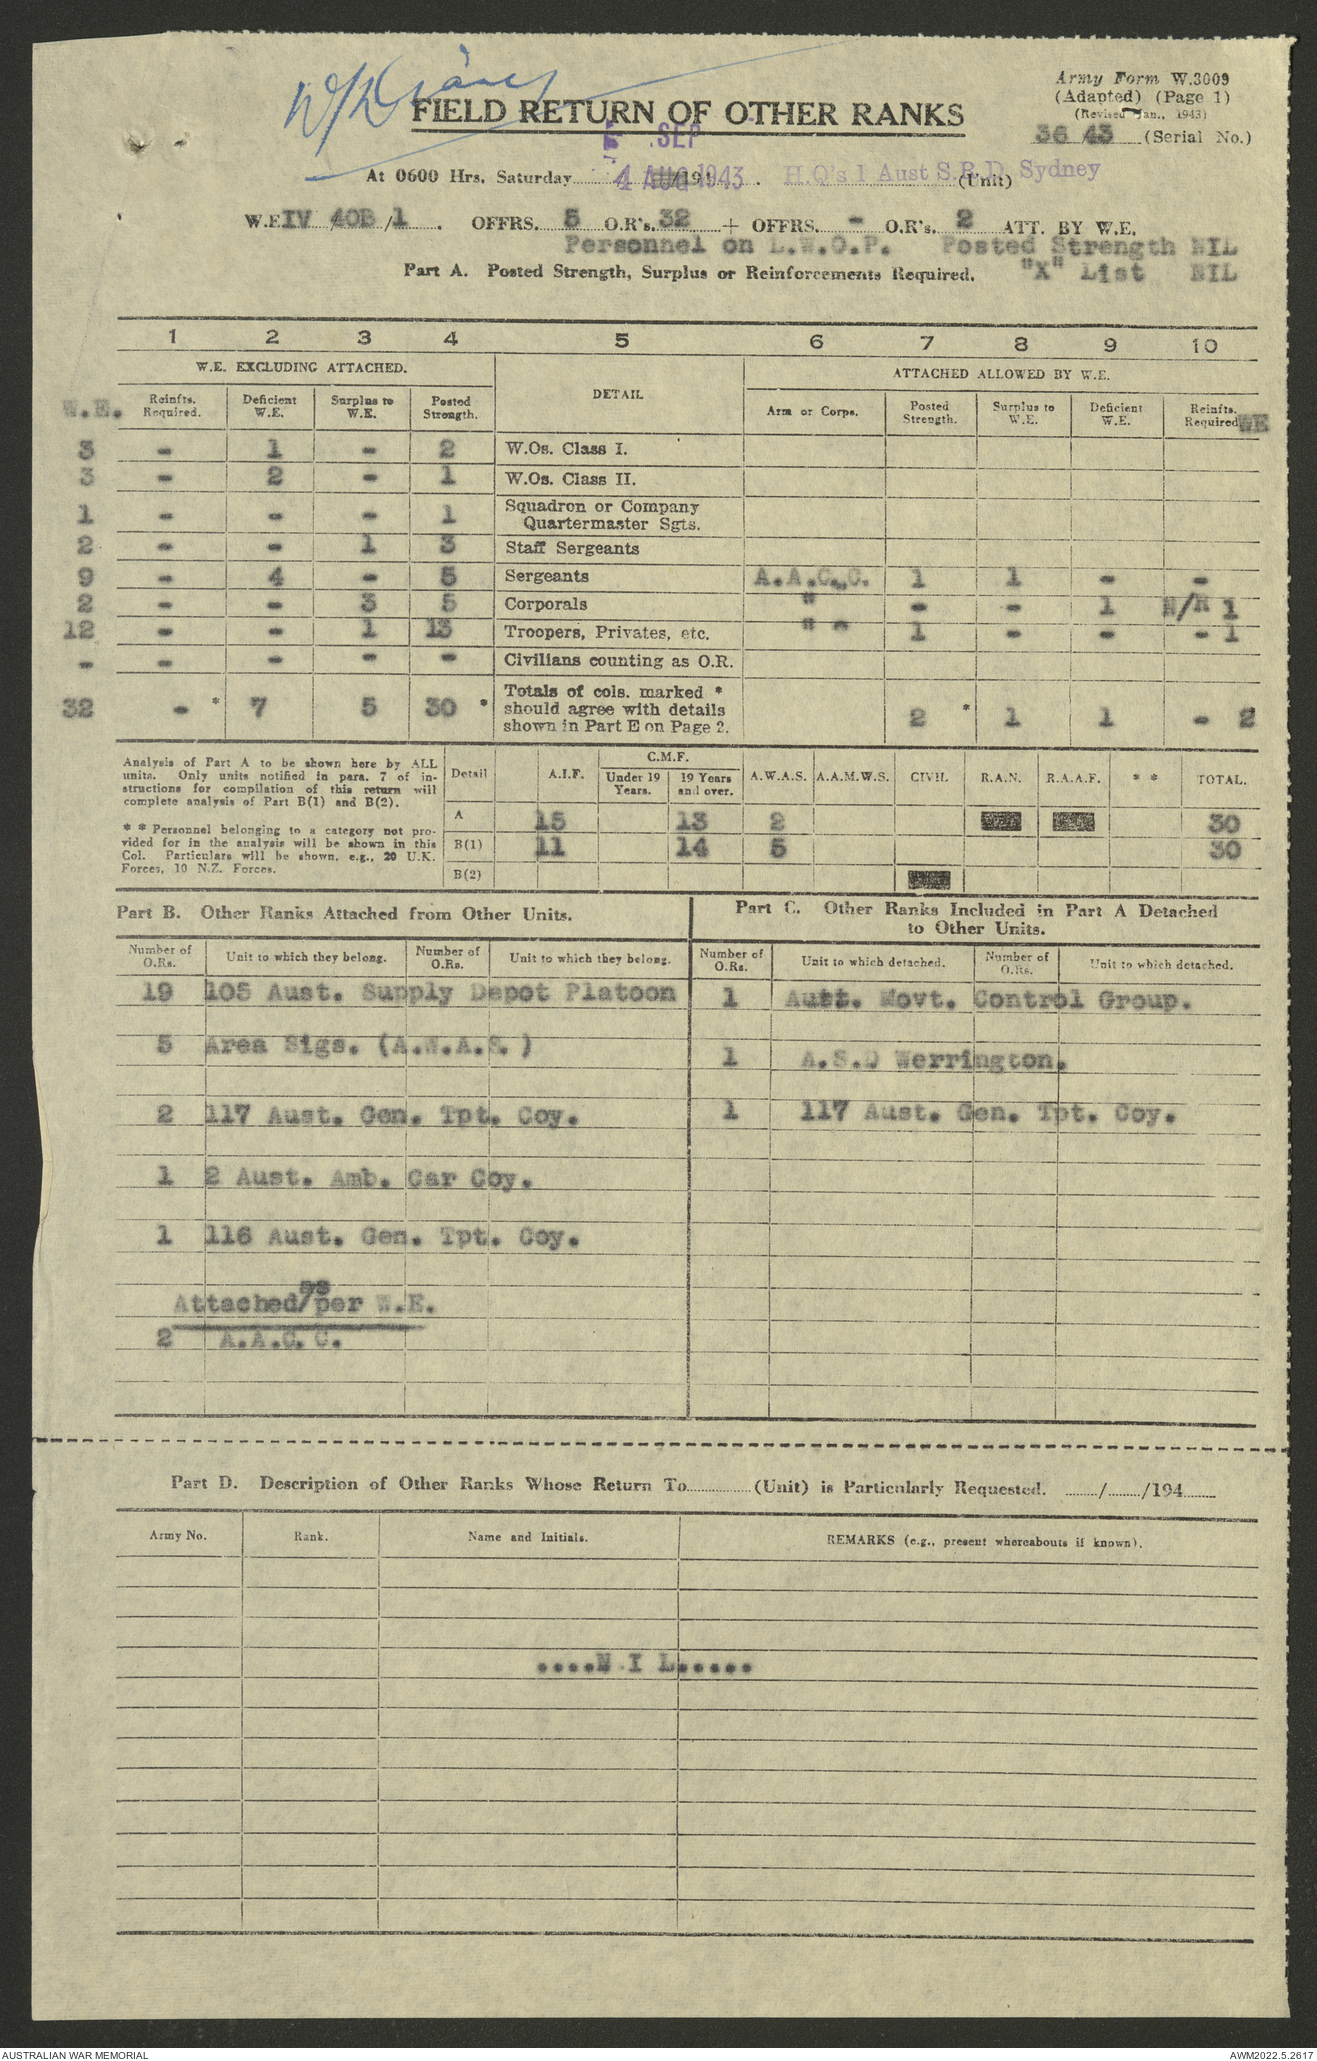 W/Diary
Army Form W.3009
(Adapted) (Page 1)
(Revised Jan., 1943)
FIELD RETURN OF OTHER RANKS
36 43 (Serial No.)
SEP
At 0600 Hrs. Saturday 4 AUG 1943 H.Q's 1 Aust S.R.D. Sydney (Unit)
W.E. IV 40B /1 . OFFRS. 5 O.R's. 32 + OFFRS. - O.R's. 2 ATT. BY W.E.
Personnel on L.W.O.P. Posted Strength NIL
Part A. Posted Strength, Surplus or Reinforcements Required. "X" List NIL
1 2 3 4 5 6 7 8 9 10
W.E. EXCLUDING ATTACHED. DETAIL ATTACHED ALLOWED BY W.E.
W.E. Reinfts. Required. Deficient W.E. Surplus to W.E. Posted Strength. Arm or Corps. Posted Strength. Surplus to W.E. Deficient W.E. Reinfts. Required WE
3 - 1 - 2 W.Os. Class I.
3 - 2 - 1 W.Os. Class II.
1 - - - 1 Squadron or Company Quartermaster Sgts.
2 - - 1 3 Staff Sergeants
9 - 4 - 5 Sergeants A.A.C.C. 1 1 - -
2 - - 3 5 Corporals " - - 1 N/R 1
12 - - 1 13 Troopers, Privates, etc. " " 1 - - - 1
- - - - - Civilians counting as O.R.
32 - * 7 5 30 * Totals of cols. marked * should agree with details shown in Part E on Page 2. 2 * 1 1 - 2
Analysis of Part A to be shown here by ALL
units. Only units notified in para. 7 of in-
structions for compilation of this return will
complete analysis of Part B(1) and B(2).
* * Personnel belonging to a category not pro-
vided for in the analysis will be shown in this
Col. Particulars will be shown, e.g., 20 U.K.
Forces, 10 N.Z. Forces.
C.M.F.
Detail A.I.F. Under 19 Years. 19 Years and over. A.W.A.S. A.A.M.W.S. CIVIL R.A.N. R.A.A.F. * * TOTAL.
A 15 13 2 30
B(1) 11 14 5 30
B(2)
Part B. Other Ranks Attached from Other Units.
Number of O.Rs. Unit to which they belong. Number of O.Rs. Unit to which they belong.
19 105 Aust. Supply Depot Platoon
5 Area Sigs. (A.W.A.S.)
2 117 Aust. Gen. Tpt. Coy.
1 2 Aust. Amb. Car Coy.
1 116 Aust. Gen. Tpt. Coy.
as
Attached/per W.E.
2 A.A.C.C.
Part C. Other Ranks Included in Part A Detached
to Other Units.
Number of O.Rs. Unit to which detached. Number of O.Rs. Unit to which detached.
1 Aust. Movt. Control Group.
1 A.S.D Werrington.
1 117 Aust. Gen. Tpt. Coy.
Part D. Description of Other Ranks Whose Return To (Unit) is Particularly Requested. / /194
Army No. Rank. Name and Initials. REMARKS (e.g., present whereabouts if known).
....N I L.....
AUSTRALIAN WAR MEMORIAL AWM2022.5.2617